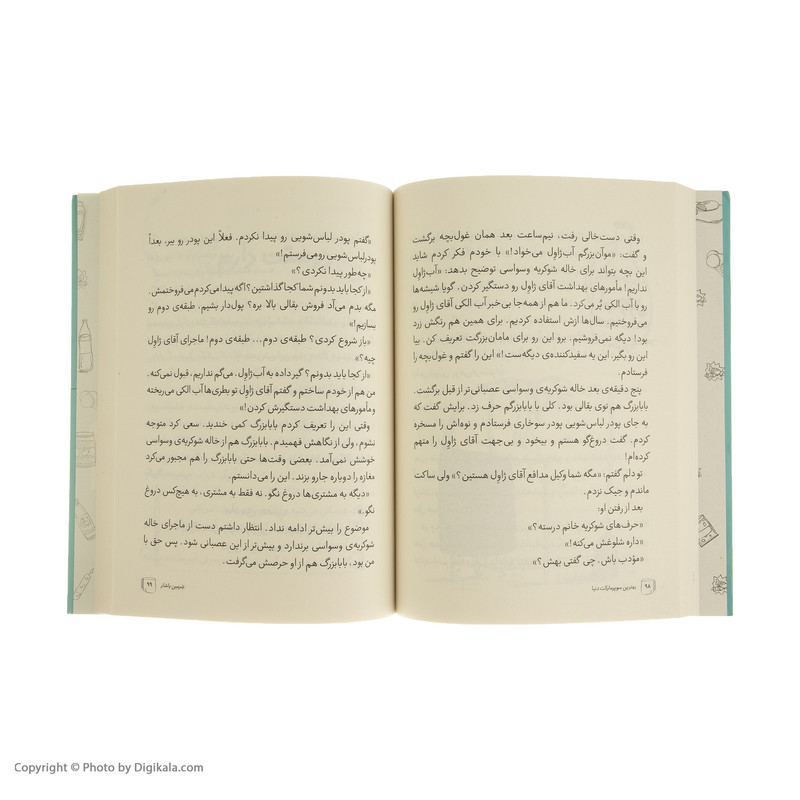 وقتی دست‌خالی رفت، نیم‌ساعت بعد همان غول‌بچه برگشت
و گفت: «موآن‌بزرگم آب‌ژاوِل می‌خواد!» با خودم فکر کردم شاید
این بچه بتواند برای خاله شوکریه وسواسی توضیح بدهد: «آب‌ژاوِل
نداریم! مأمورهای بهداشت آقای ژاوِل رو دستگیر کردن. گویا شیشه‌ها
رو با آب الکی پُر می‌کرد. ما هم از همه‌جا بی‌خبر آب الکی آقای ژاوِل رو
می‌فروختیم. سال‌ها ازش استفاده کردیم. برای همین هم رنگش زرد
بود! دیگه نمی‌فروشیم. برو این رو برای مامان‌بزرگت تعریف کن. بیا
این رو بگیر. این یه سفیدکننده‌ی دیگه‌ست!» این را گفتم و غول‌بچه را
فرستادم.
پنج دقیقه‌ی بعد خاله شوکریه‌ی وسواسی عصبانی‌تر از قبل برگشت.
بابابزرگ هم توی بقالی بود. کلی با بابابزرگم حرف زد. برایش گفت که
به جای پودر لباس‌شویی پودر سوخاری فرستادم و نوه‌اش را مسخره
کردم. گفت دروغ‌گو هستم و بیخود و بی‌جهت آقای ژاوِل را متهم
کرده‌ام!
تو دلم گفتم: «مگه شما وکیل مدافع آقای ژاوِل هستین؟» ولی ساکت
ماندم و جیک نزدم.
بعد از رفتن او:
«حرف‌های شوکریه خانم درسته؟»
«داره شلوغش می‌کنه!»
«مؤدب باش. چی گفتی بهش؟»
۹۸ بهترین سوپرمارکت دنیا
«گفتم پودر لباس‌شویی رو پیدا نکردم. فعلاً این پودر رو ببر. بعداً
پودرلباس‌شویی رو می‌فرستم!»
«چه‌طور پیدا نکردی؟»
«از کجا باید بدونم شما کجا گذاشتین؟ اگه پیدا می‌کردم می‌فروختمش.
مگه بدم می‌آد فروش بقالی بالا بره؟ پول‌دار بشیم. طبقه‌ی دوم رو
بسازیم!»
«باز شروع کردی؟ طبقه‌ی دوم... طبقه‌ی دوم! ماجرای آقای ژاوِل
چیه؟»
«از کجا باید بدونم؟ گیر داده به آب‌ژاوِل. می‌گم نداریم، قبول نمی‌کنه.
من هم از خودم ساختم و گفتم آقای ژاوِل تو بطری‌ها آب الکی می‌ریخته
و مأمورهای بهداشت دستگیرش کردن!»
وقتی این را تعریف کردم بابابزرگ کمی خندید. سعی کرد متوجه
نشوم، ولی از نگاهش فهمیدم. بابابزرگ هم از خاله شوکریه‌ی وسواسی
خوشش نمی‌آمد. بعضی وقت‌ها حتی بابابزرگ را هم مجبور می‌کرد
مغازه را دوباره جارو بزند. این را می‌دانستم.
«دیگه به مشتری‌ها دروغ نگو. نه فقط به مشتری، به هیچ‌کس دروغ
نگو.»
موضوع را بیش‌تر ادامه نداد. انتظار داشتم دست از ماجرای خاله
شوکریه‌ی وسواسی برندارد و بیش‌تر از این عصبانی شود. پس حق با
من بود. بابابزرگ هم از او حرصش می‌گرفت.
شرمین یاشار ۹۹
Copyright © Photo by Digikala.com